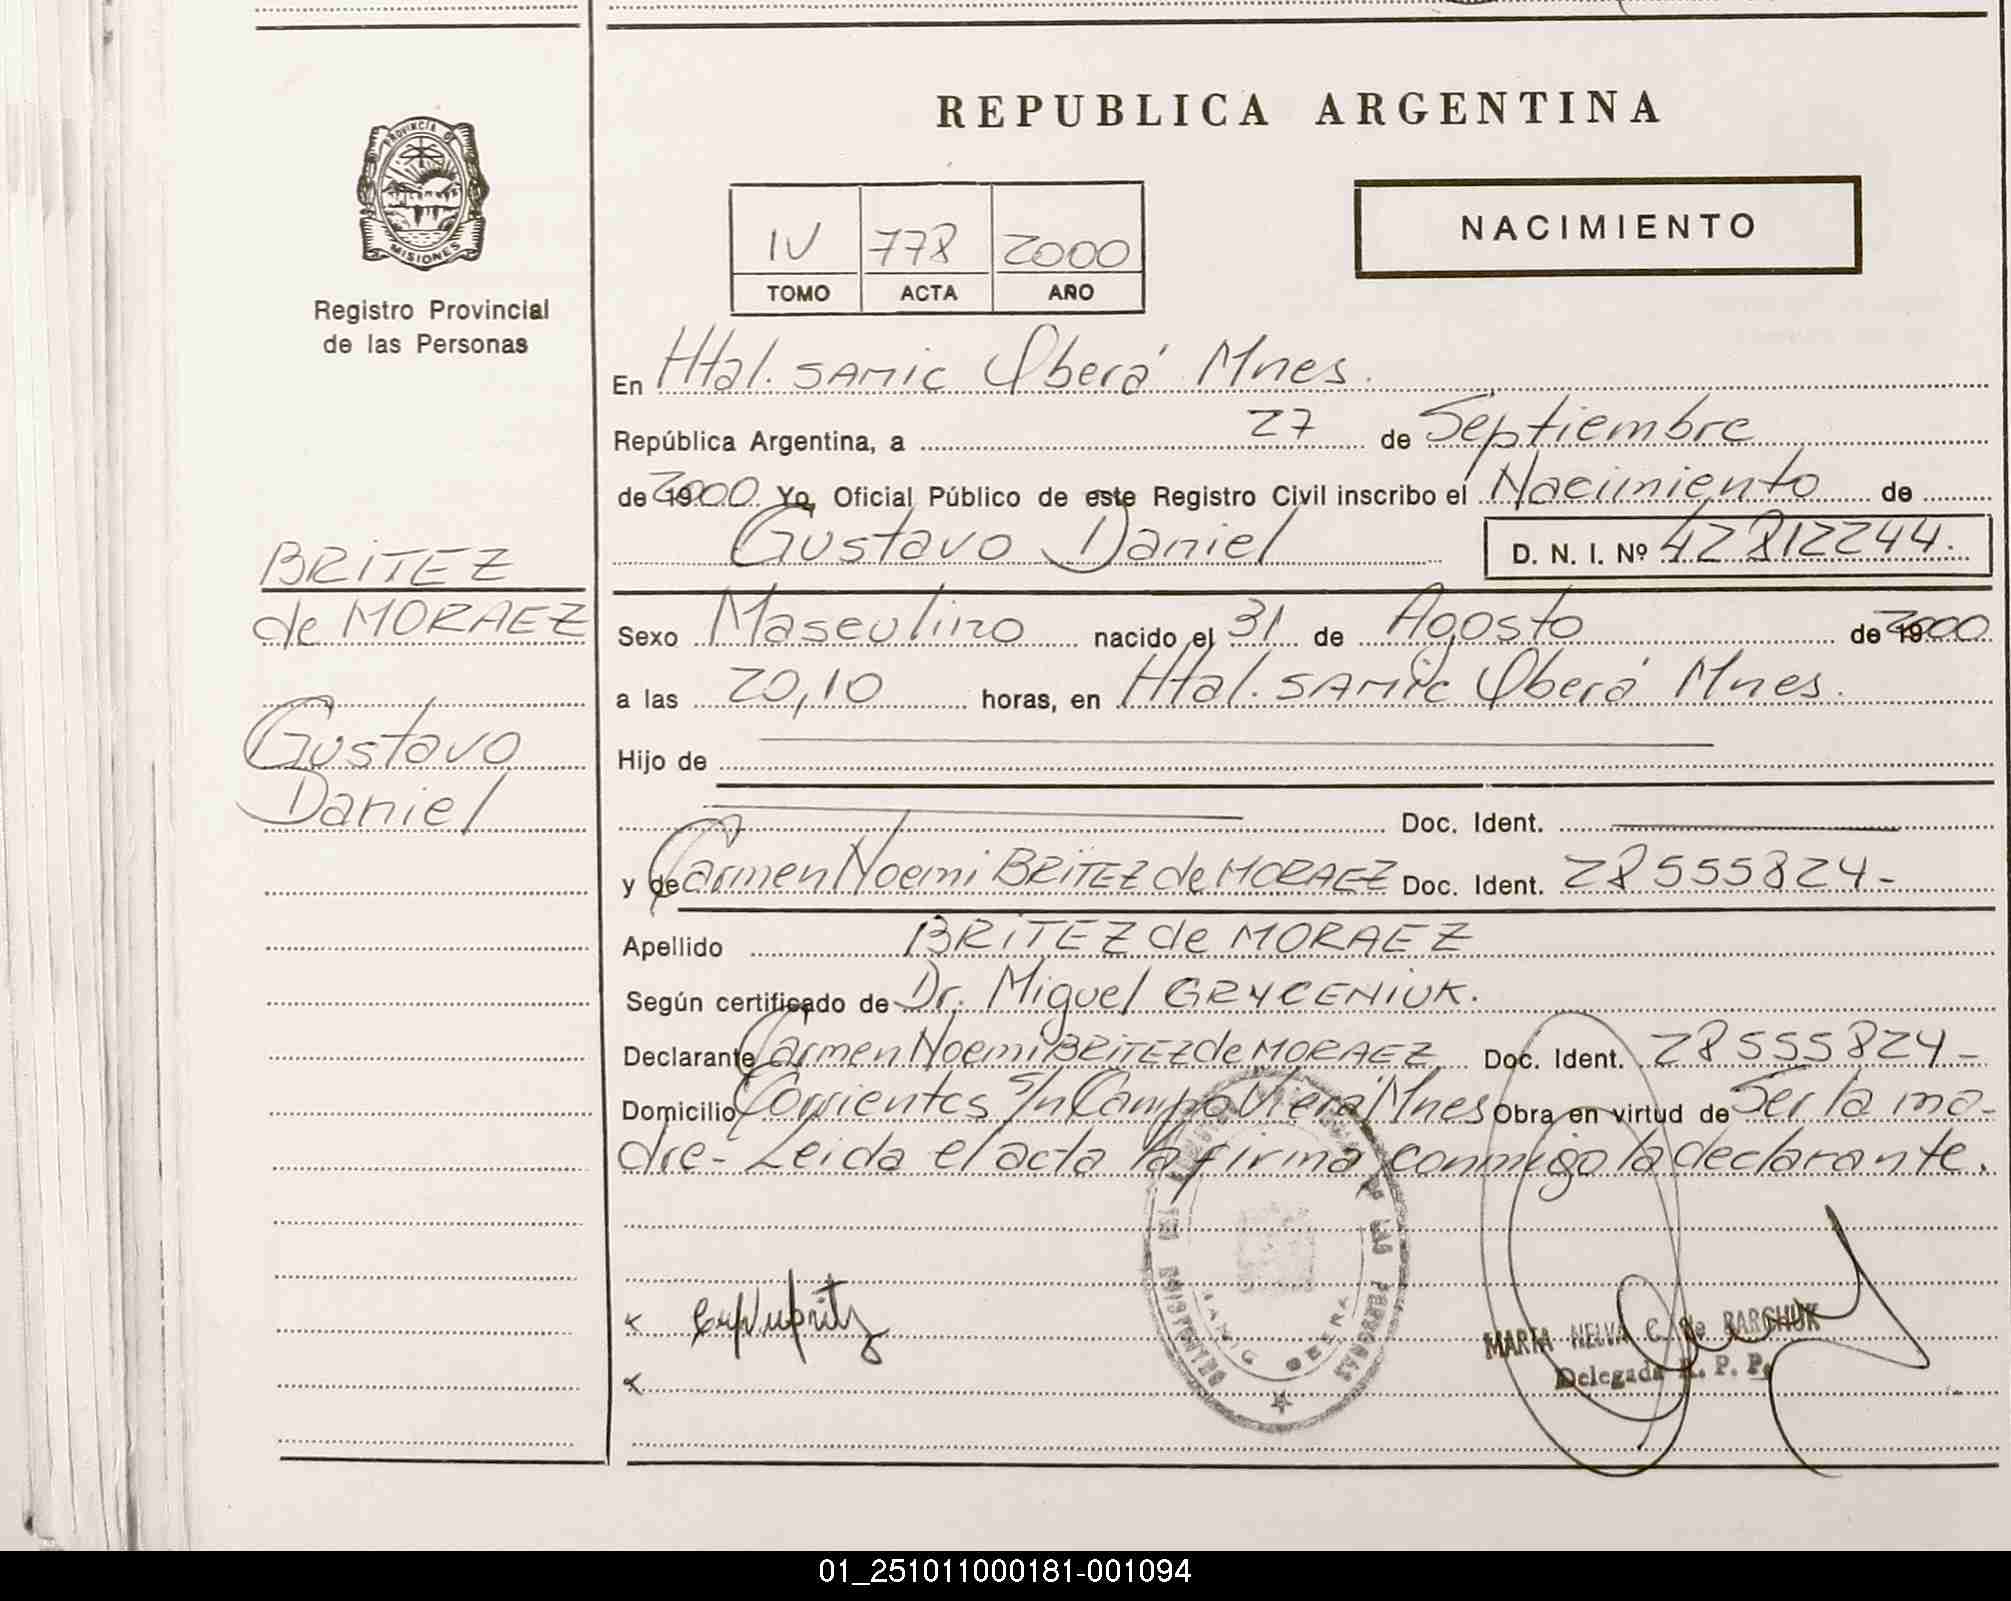 REPUBLICA ARGENTINA
PROVINCIA DE MISIONES
Registro Provincial
de las Personas
NACIMIENTO
IV 778 2000
TOMO ACTA AÑO
En Htal. SAMIC Oberá Mnes.
República Argentina, a 27 de Septiembre
de 192000 Yo, Oficial Público de este Registro Civil inscribo el Nacimiento de
Gustavo Daniel D. N. I. Nº 42812244.
BRITEZ
de MORAEZ
Gustavo
Daniel
Sexo Masculino nacido el 31 de Agosto de 192000
a las 20,10 horas, en Htal. SAMIC Oberá Mnes.
Hijo de
Doc. Ident.
y de Carmen Noemi BRITEZ de MORAEZ Doc. Ident. 28555824-
Apellido BRITEZ de MORAEZ
Según certificado de Dr. Miguel GRYCENIUK.
Declarante Carmen Noemi BRITEZ de MORAEZ Doc. Ident. 28555824-
Domicilio Corrientes s/n Campo Viera Mnes Obra en virtud de Ser la ma-
dre- Leida el acta la firma conmigo la declarante.
MARTA NELVA C. de BARCHUK
Delegada R. P. P.
01_251011000181-001094